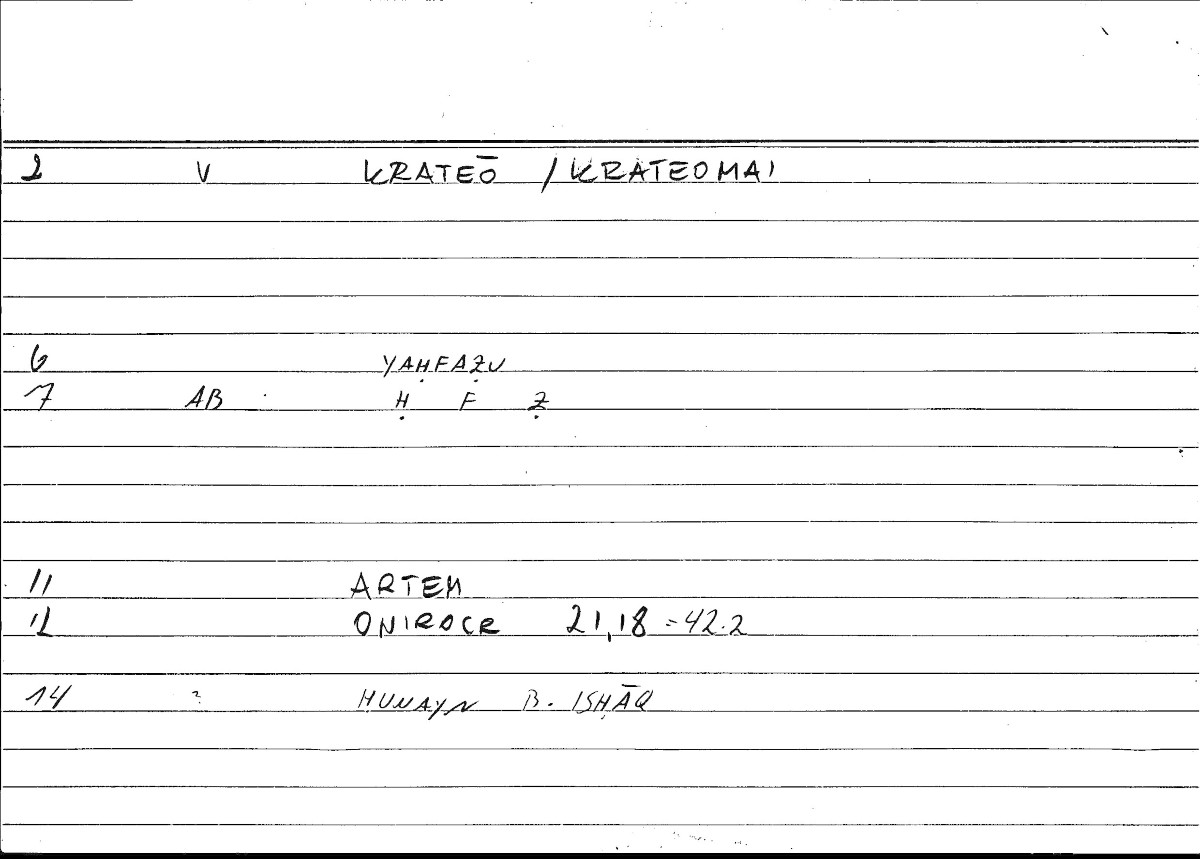 2 V KRATEŌ / KRATEOMAI
6 YAḤFAẒU
7 AB Ḥ F Ẓ
11 ARTEM
12 ONIROCR 21,18 = 42.2
14 ? ḤUNAYN B. ISḤĀQ